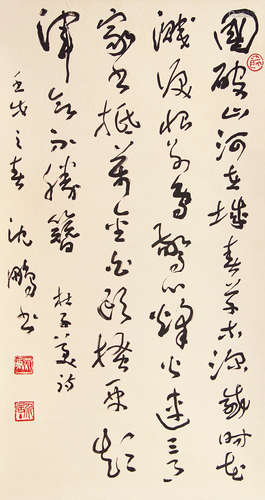 國破山河在城春草木深感時花
濺淚恨別鳥驚心烽火連三月
家書抵萬金白頭搔更短
渾欲不勝簪 杜子美詩
壬戌之春 沈鵬書